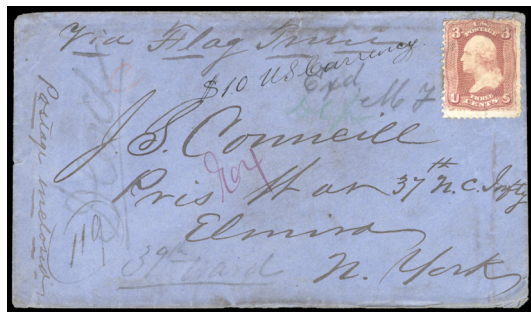 Via Flag Truce
$10 US Currency
Exd
J. S. Councill
Pris War 37th N.C. Infty
Elmira
N. York
39th Ward
Postage inclosed
3 U.S. POSTAGE 3
U THREE CENTS S